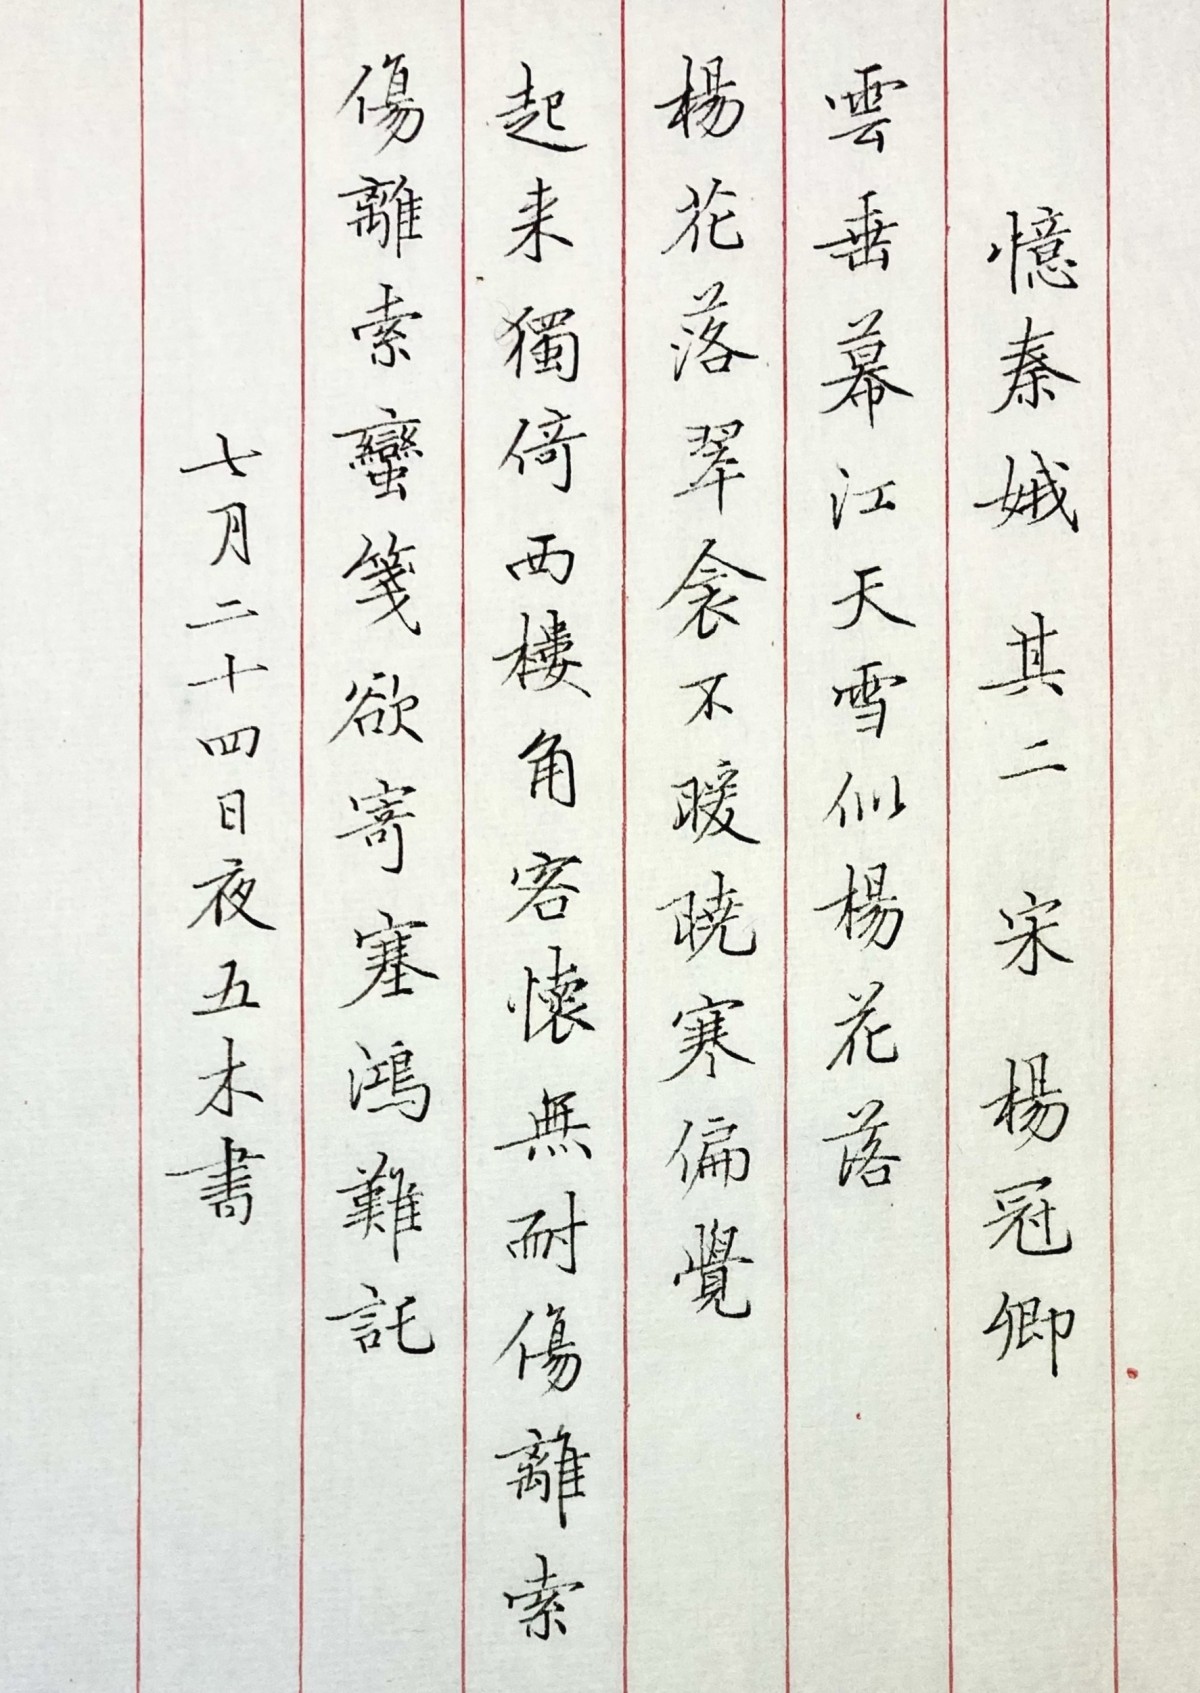 憶秦娥 其二 宋 楊冠卿
雲垂幕江天雪似楊花落
楊花落翠衾不暖曉寒偏覺
起来獨倚西樓角客懷無耐傷離索
傷離索蠻箋欲寄塞鴻難託
七月二十四日夜五木書